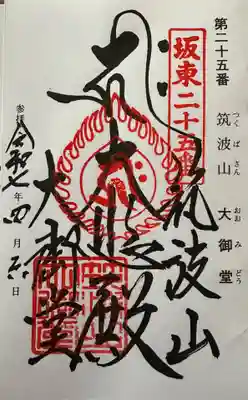 第二十五番
筑波山 大御堂
つくばさん おおみどう
坂東二十五番
筑波山
大悲殿
大御堂
参拝 令和七年四月 日